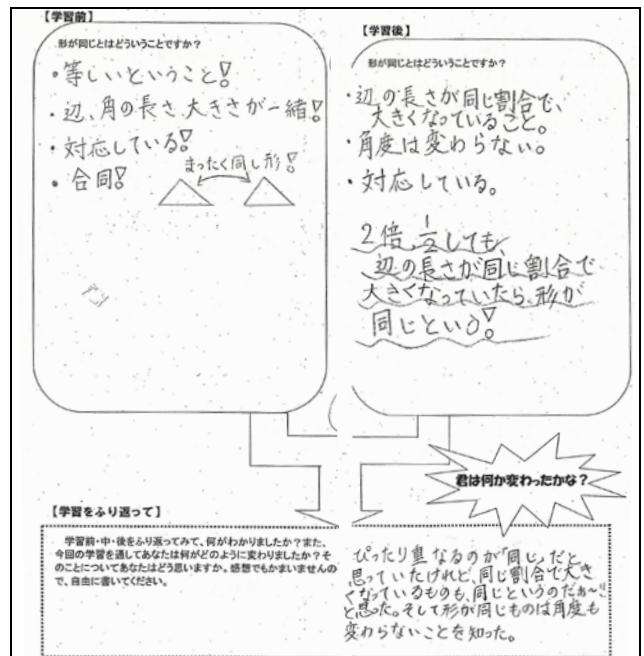 【学習前】
形が同じとはどういうことですか？
・等しいということ!
・辺、角の長さ、大きさが一緒!
・対応している!
・合同!
まったく同じ形!
【学習後】
形が同じとはどういうことですか？
・辺の長さが同じ割合で、
大きくなっていること。
・角度は変わらない。
・対応している。
2倍、1/2しても、
辺の長さが同じ割合で
大きくなっていたら、形が
同じという!
君は何か変わったかな？
【学習をふり返って】
学習前・中・後をふり返ってみて、何がわかりましたか？また、
今回の学習を通してあなたは何がどのように変わりましたか？そ
のことについてあなたはどう思いますか。感想でもかまいませんの
で、自由に書いてください。
ぴったり重なるのが「同じ」だと
思っていたけれど、同じ割合で大き
くなっているものも、同じというのだぁ〜!!
と思った。そして形が同じものは角度も
変わらないことを知った。